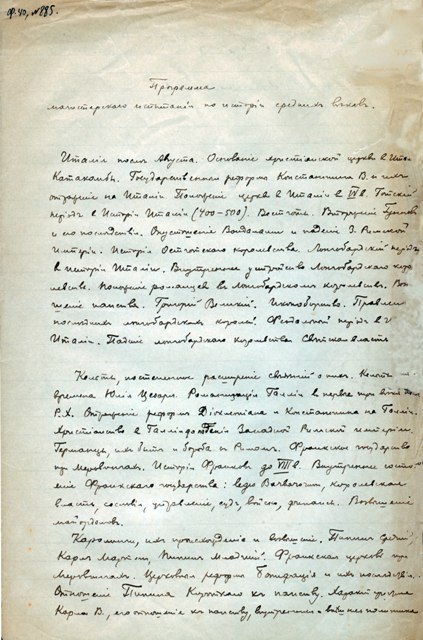 Ф. 40, № 885.
Программа
магистерского испытанія по исторіи среднихъ вѣковъ.
Италія послѣ Августа. Основаніе христіанской церкви въ Ита
Катакомбы. Государственныя реформы Константина В. и ихъ
отраженіе на Италіи. Положеніе церкви въ Италіи въ IV в. Готскій
періодъ въ Исторіи Италіи (400–500). Вестготы. Вторженіе Гунновъ
и его послѣдствія. Опустошеніе Вандалами и паденіе З. Римской
Имперіи. Исторія Остготскаго королевства. Лонгобардскій періодъ
въ исторіи Италіи. Внутреннее устройство Лонгобардскаго коро
левства. Положеніе романцевъ въ Лонгобардскомъ королевствѣ. Воз
вышеніе папства. Григорій Великій. Иконоборство. Правленіе
послѣднихъ лонгобардскихъ королей. Феодальный періодъ въ
Италіи. Паденіе лонгобардскаго королевства. Свѣтская власть
Кельты, постепенное расширеніе свѣдѣній о нихъ. Кельты
времена Юлія Цезаря. Романизація Галліи въ первые три вѣка по
Р. Х. Отраженіе реформъ Діоклетіана и Константина на Галліи.
Христіанство въ Галліи до паденія Западной Римской имперіи.
Германцы, ихъ бытъ и борьба съ Римомъ. Франкское государство
при Меровингахъ. Исторія Франковъ до VIII в. Внутреннее состо
яніе Франкскаго государства: королевская
власть, сословія, управленіе, судъ, войско, финансы. Возвышеніе
майордомовъ.
Каролинги, ихъ происхожденіе и возвышеніе. Пипинъ Средній,
Карлъ Мартеллъ, Пипинъ Младшій. Франкская церковь при
Меровингахъ. Церковная реформа Бонифація и ихъ послѣдствія.
Отношеніе Пипина Короткаго къ папству.
Карла В., его отношеніе къ папству, внутренняя и внѣшняя политика